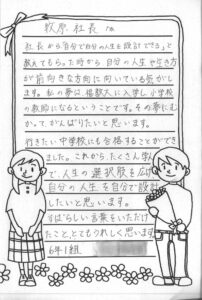 牧原 社長 へ
社長から「自分で自分の人生を設計できる」と
教えてもらった時から自分の人生や生き方
が前向きな方向に向いている気がし
ます。私の夢は、
の教師になるということです。その夢にむ
かって、がんばりたいと思います。
行きたい中学校にも合格することができ
ました。これから、たくさん学ん
で、人生の選択肢を広げ
自分の人生を自分で設計
したいと思います。
すばらしい言葉をいただけ
たこと、とてもうれしく思います。
6年1組